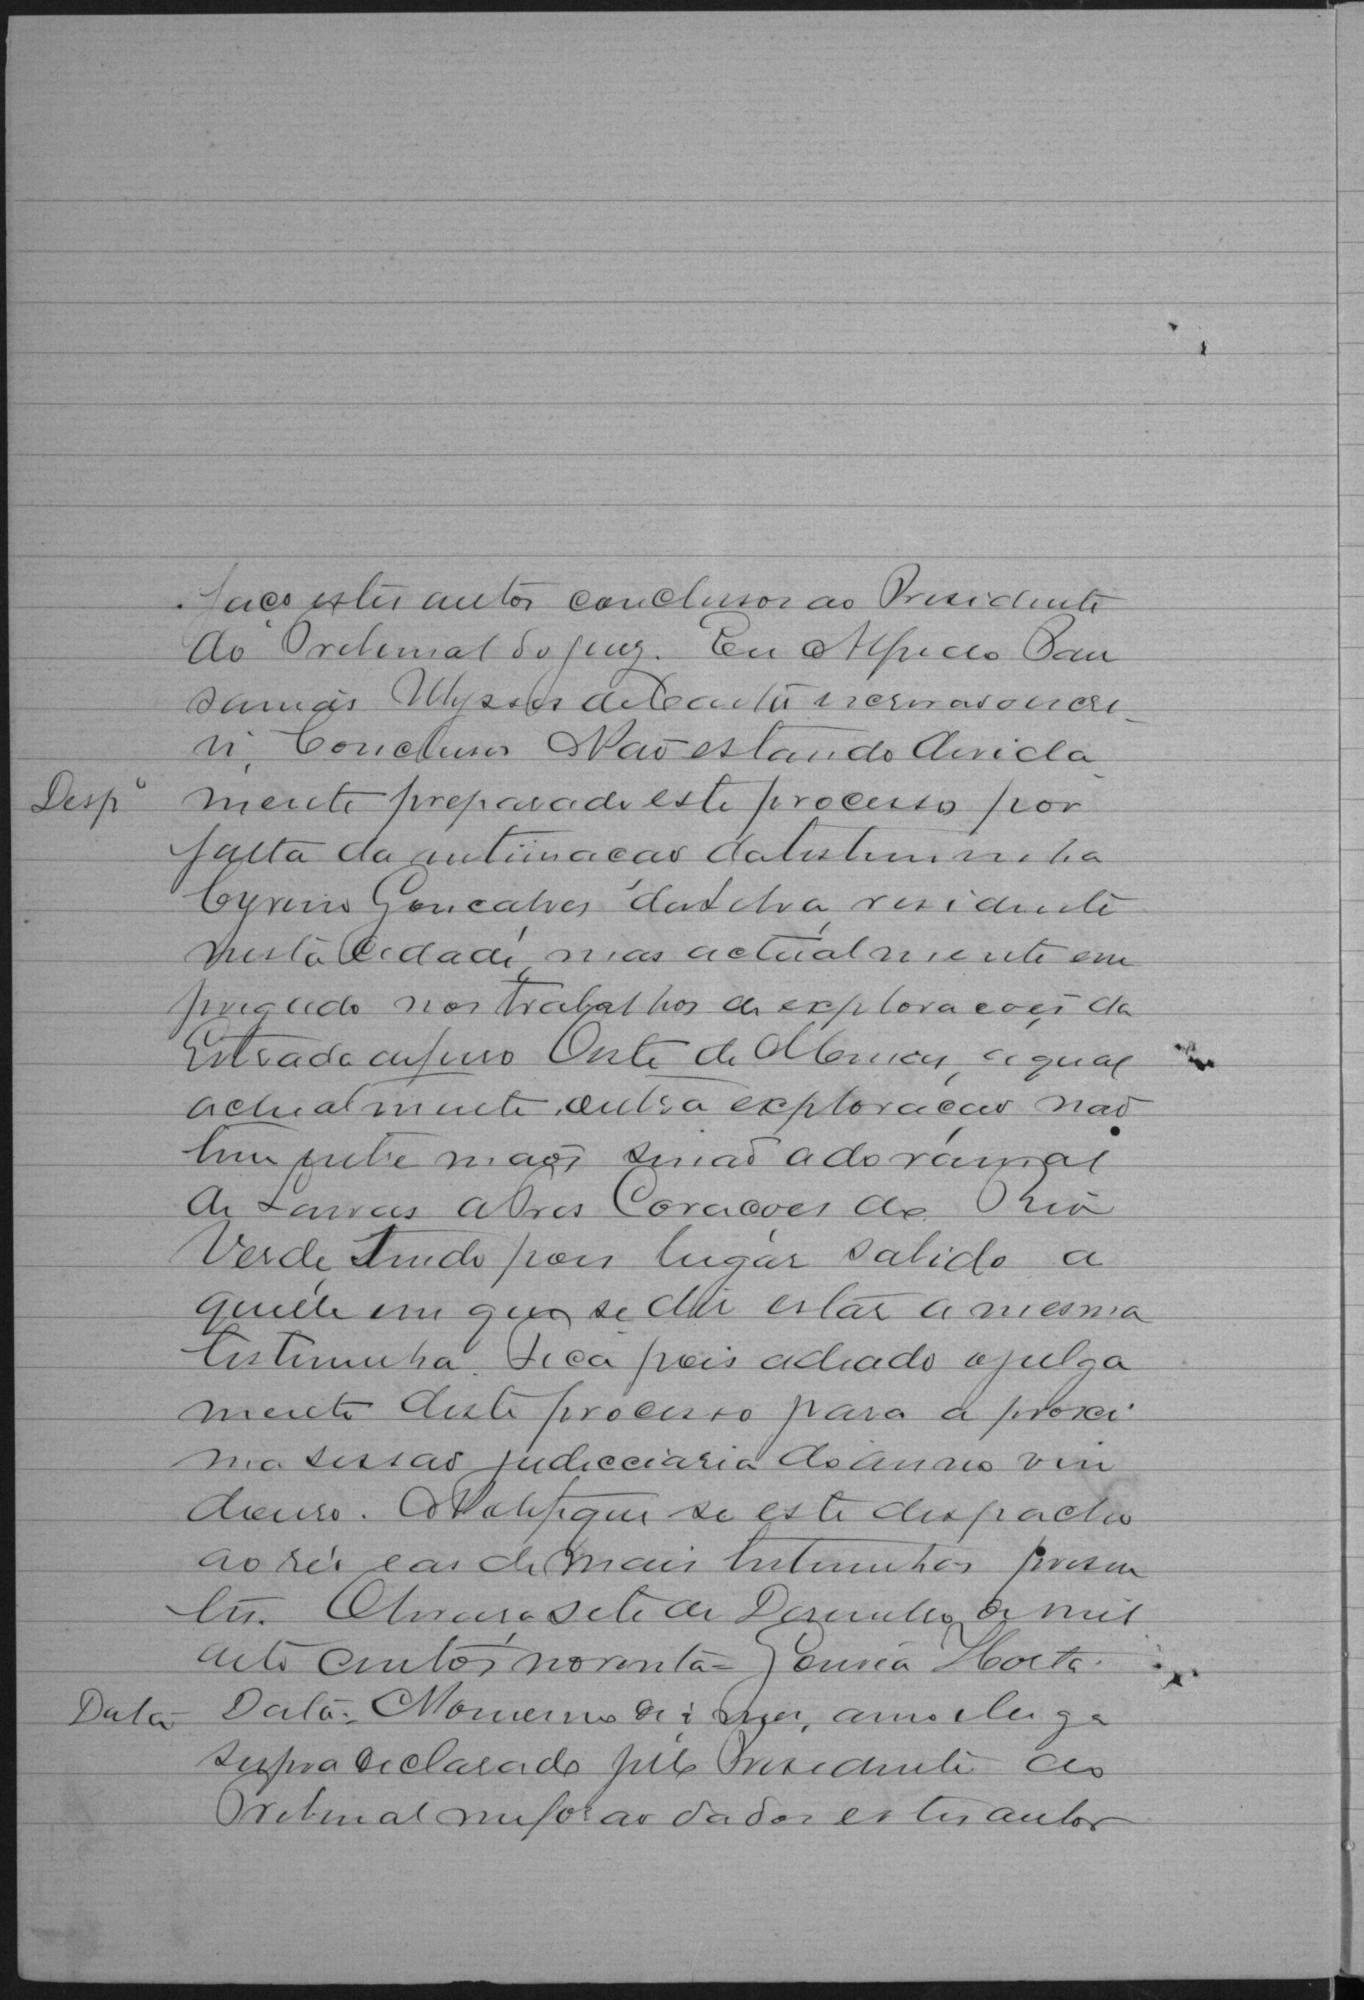 faço estes autos conclusos ao Presidente
do Tribunal do jury. Eu Alfredo Pau
Ulysses de escri
vi, Conclusos Não estando devida
Desp.º mente preparado este processo por
falta da intimação da testemunha
Cyrino Gonçalves da Silva, residente
nesta Cidade, mas actualmente em
pregado nos trabalhos de explorações da
Estrada de ferro Oeste de Minas, a qual
actualmente outra exploração não
tem entre mãos senão a do ramal
de Lavras a Tres Corações do Rio
Verde, sendo pois lugar sabido a
quelle em que se diz estar a mesma
testemunha. Fica pois adiado o julga
mento deste processo para a proxi
ma sessão judicciaria do anno vin
douro. Notifique se este despacho
ao réo e as demais testemunhas presen
tes. sete de Dezembro de mil
oito centos noventa = Gouvêa Horta.
Data Data = No mesmo dia, mez, anno e luga
supra declarado pelo Presidente do
Tribunal me forão dados estes autos